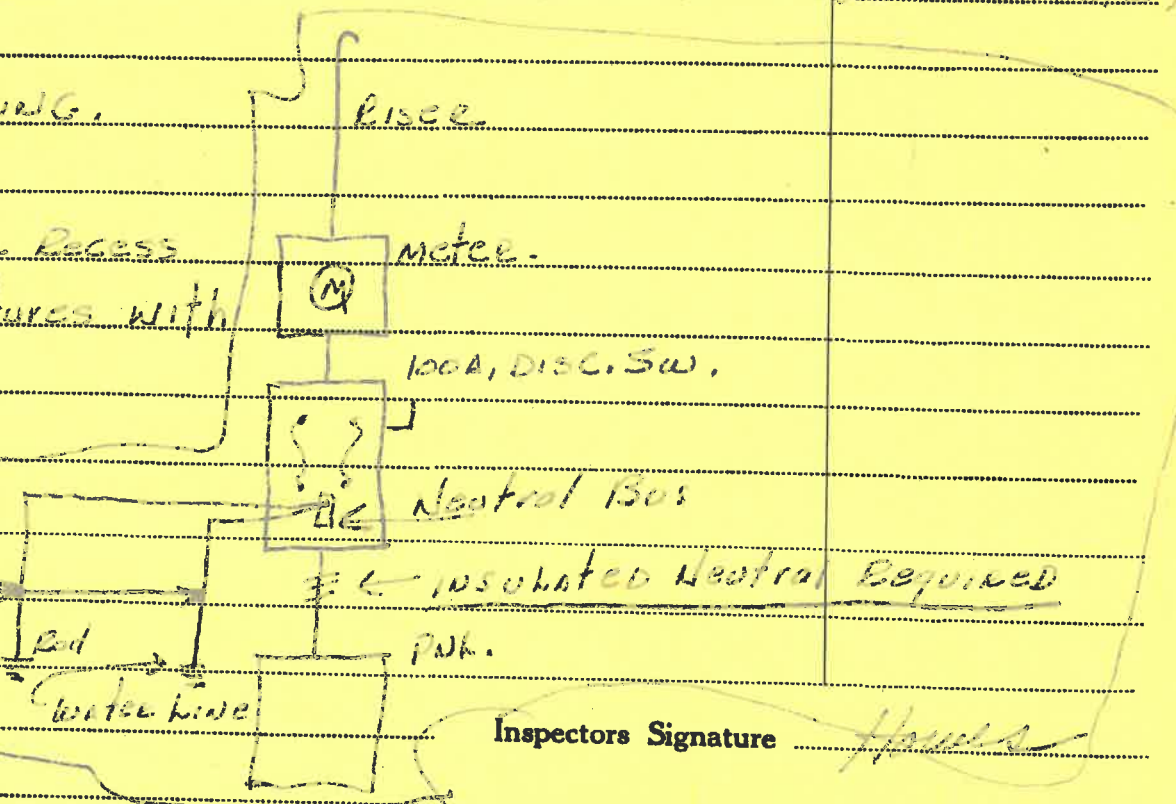 Riser
Recess
Meter.
M
tures with
100A, DISC. SW.
Neutral Bus
INSULATED Neutral Required
Rod
PNL.
Water Line
Inspectors Signature